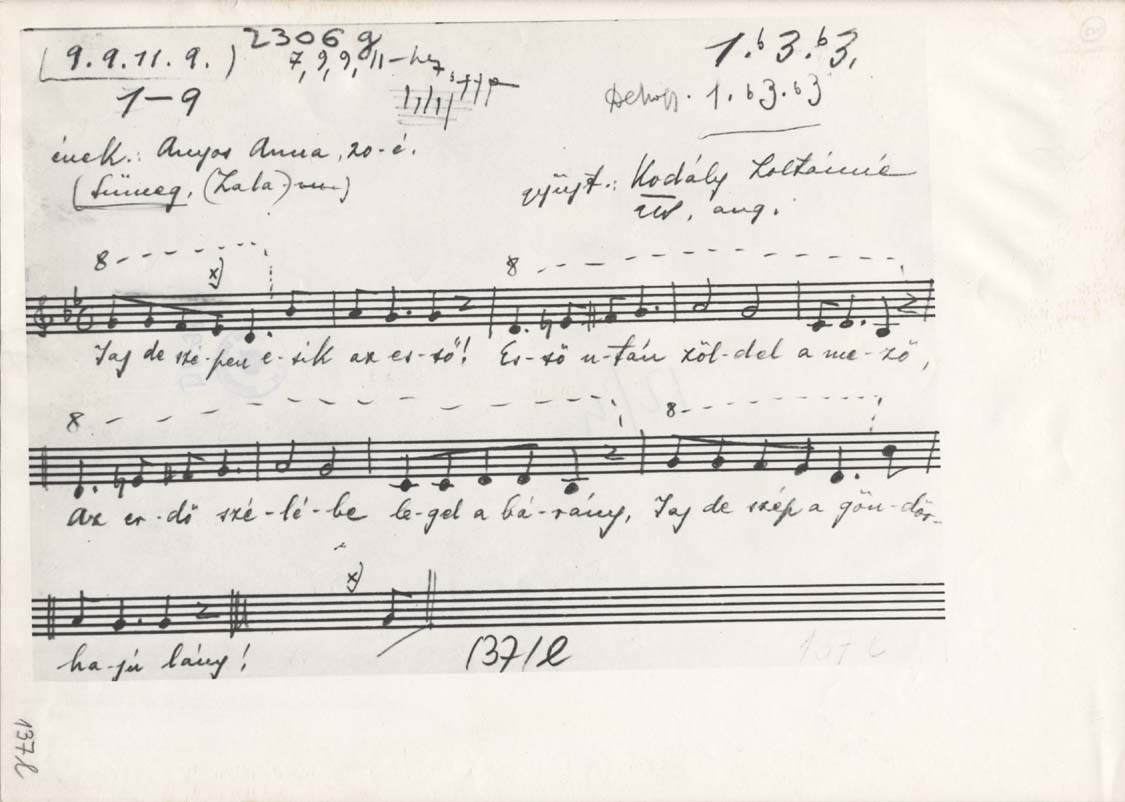 2306 g
(9.9.11.9.) 7, 9, 9, 11-hez
1-9
1.b3.b3.
1.b3.b3
ének.: Anyos Anna, 20-é.
(Sümeg, (Zala) vm)
gyűjt.: Kodály Zoltánné
aug.
8 x)
8
Jaj de szépen e-sik az es-ső! Es-ső u-tán zöl-del a me-ző,
8
8
Az er-dő szé-lé-be le-gel a bá-rány, Jaj de szép a gön-dör-
x)
ha-jú lány!
137/l
137 l
137 l